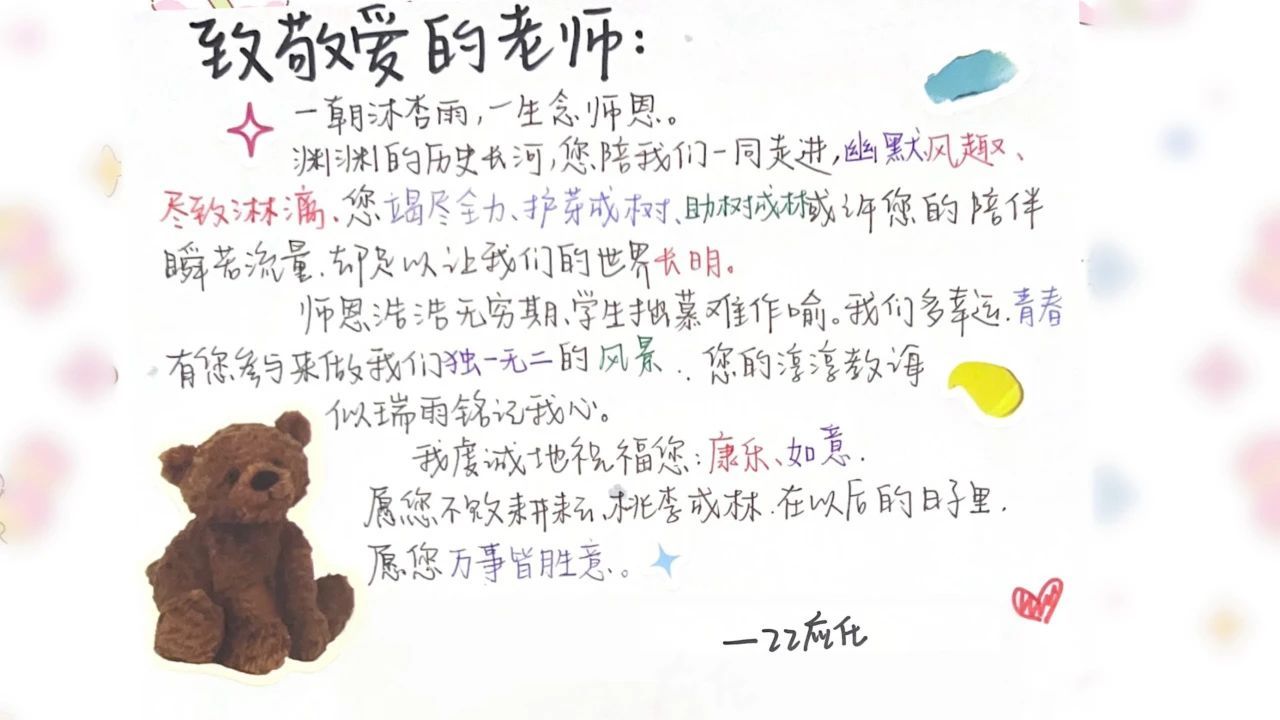 致敬爱的老师：
一朝沐杏雨，一生念师恩。
渊渊的历史长河，您陪我们一同走进，幽默风趣、
尽致淋漓、您竭尽全力、护芽成树、助树成林或许您的陪伴
瞬若流量、却足以让我们的世界长明。
师恩浩浩无穷期、学生拙慕难作喻。我们多幸运、青春
有您参与来做我们独一无二的风景、您的淳淳教诲
似瑞雨铭记我心。
我虔诚地祝福您：康乐、如意．
愿您不败耕耘、桃李成林．在以后的日子里．
愿您万事皆胜意．。
—22应化